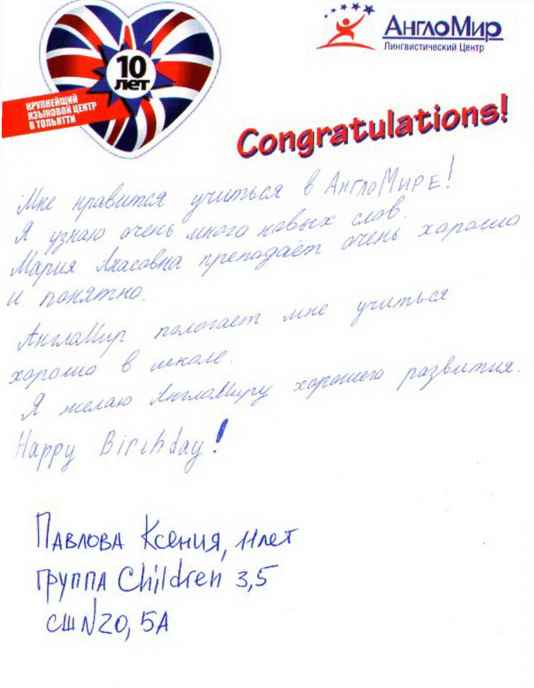 10
лет
КРУПНЕЙШИЙ
ЯЗЫКОВОЙ ЦЕНТР
В ТОЛЬЯТТИ
АнглоМир
Лингвистический Центр
Congratulations!
Мне нравится учиться в АнглоМИРЕ!
Я узнаю очень много новых слов.
Мария преподаёт очень хорошо
и понятно.
АнглоМир помогает мне учиться
хорошо в школе.
Я желаю АнглоМиру хорошего развития.
Happy Birthday!
ПАВЛОВА Ксения, 11 лет
ГРУППА Children 3,5
СШ N20, 5А